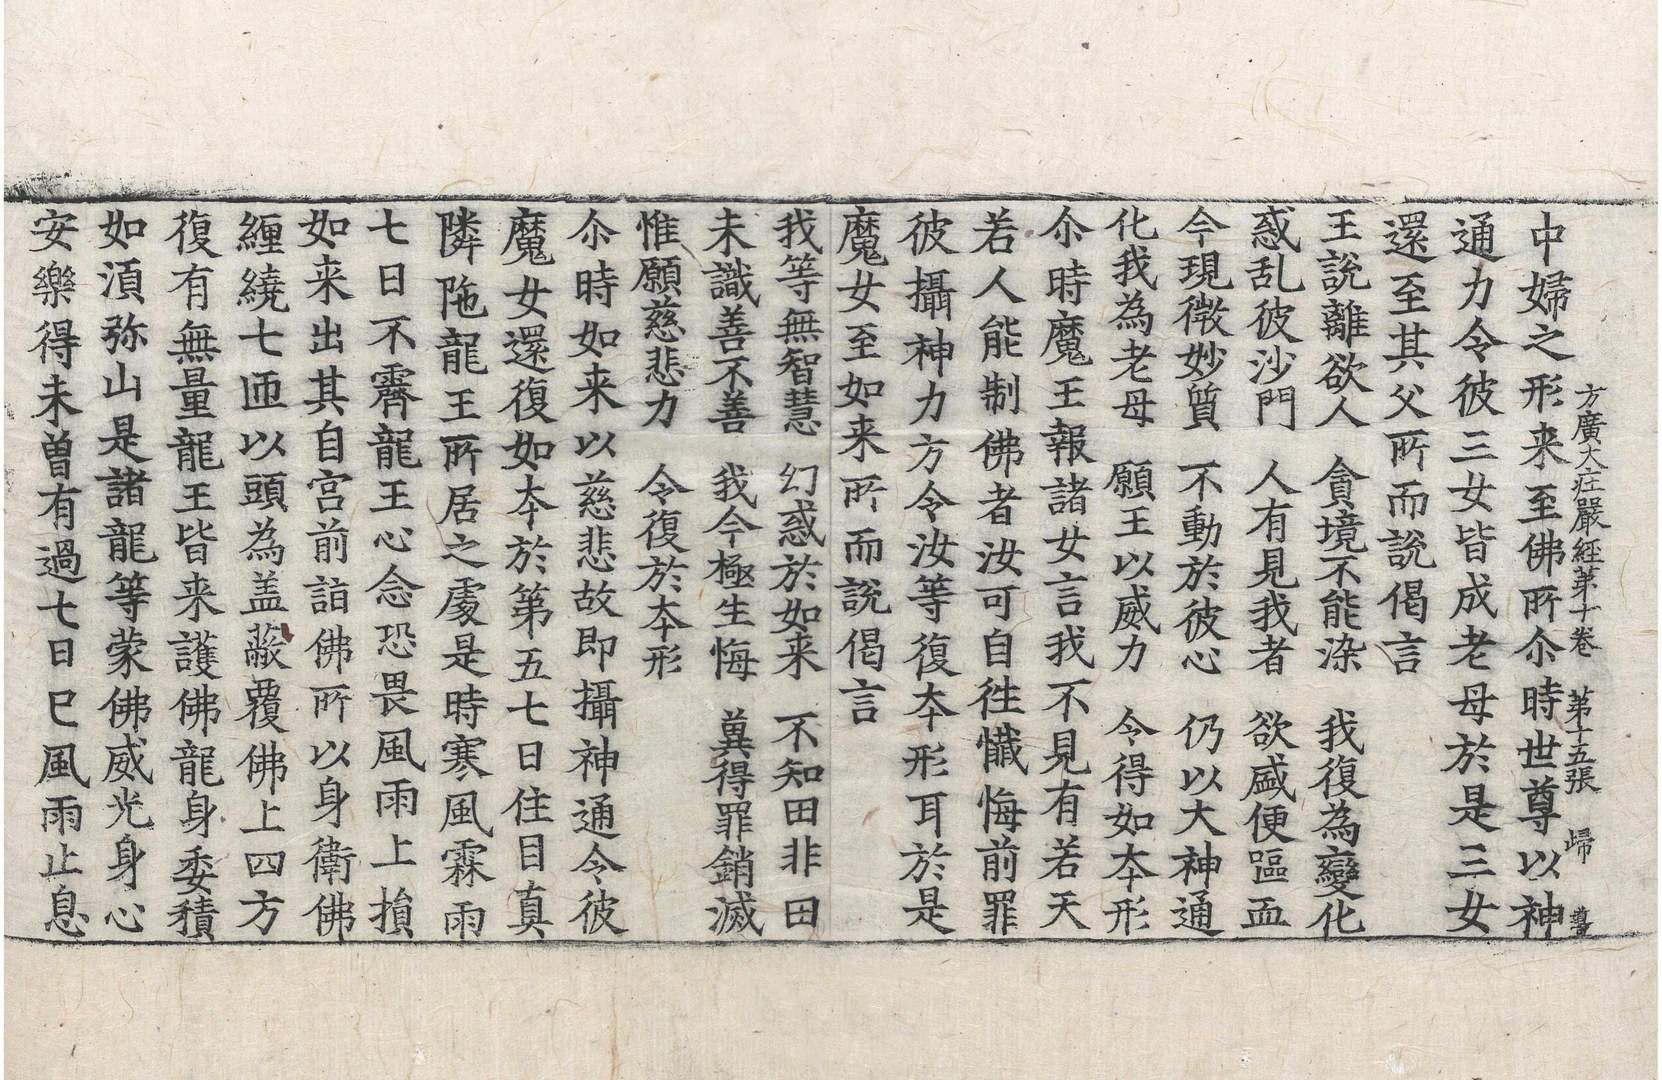 方廣大庄嚴經第十卷 第十五張 歸
中婦之形来至佛所尒時世尊以神
通力令彼三女皆成老母於是三女
還至其父所而說偈言
王說離欲人 貪境不能染 我復為變化
惑乱彼沙門 人有見我者 欲盛便嘔血
今現微妙質 不動於彼心 仍以大神通
化我為老母 願王以威力 令得如夲形
尒時魔王報諸女言我不見有若天
若人能制佛者汝可自徃懺悔前罪
彼攝神力方令汝等復夲形耳於是
魔女至如来所而說偈言
我等無智慧 幻惑於如来 不知田非田
未識善不善 我今極生悔 兾得罪銷滅
惟願慈悲力 令復於夲形
尒時如来以慈悲故即攝神通令彼
魔女還復如夲於第五七日住目真
隣陁龍王所居之處是時寒風霖雨
七日不霽龍王心念恐畏風雨上損
如来出其自宫前詣佛所以身衛佛
纏繞七匝以頭為盖蔽覆佛上四方
復有無量龍王皆来護佛龍身委積
如湏弥山是諸龍等蒙佛威光身心
安樂得未曽有過七日已風雨止息